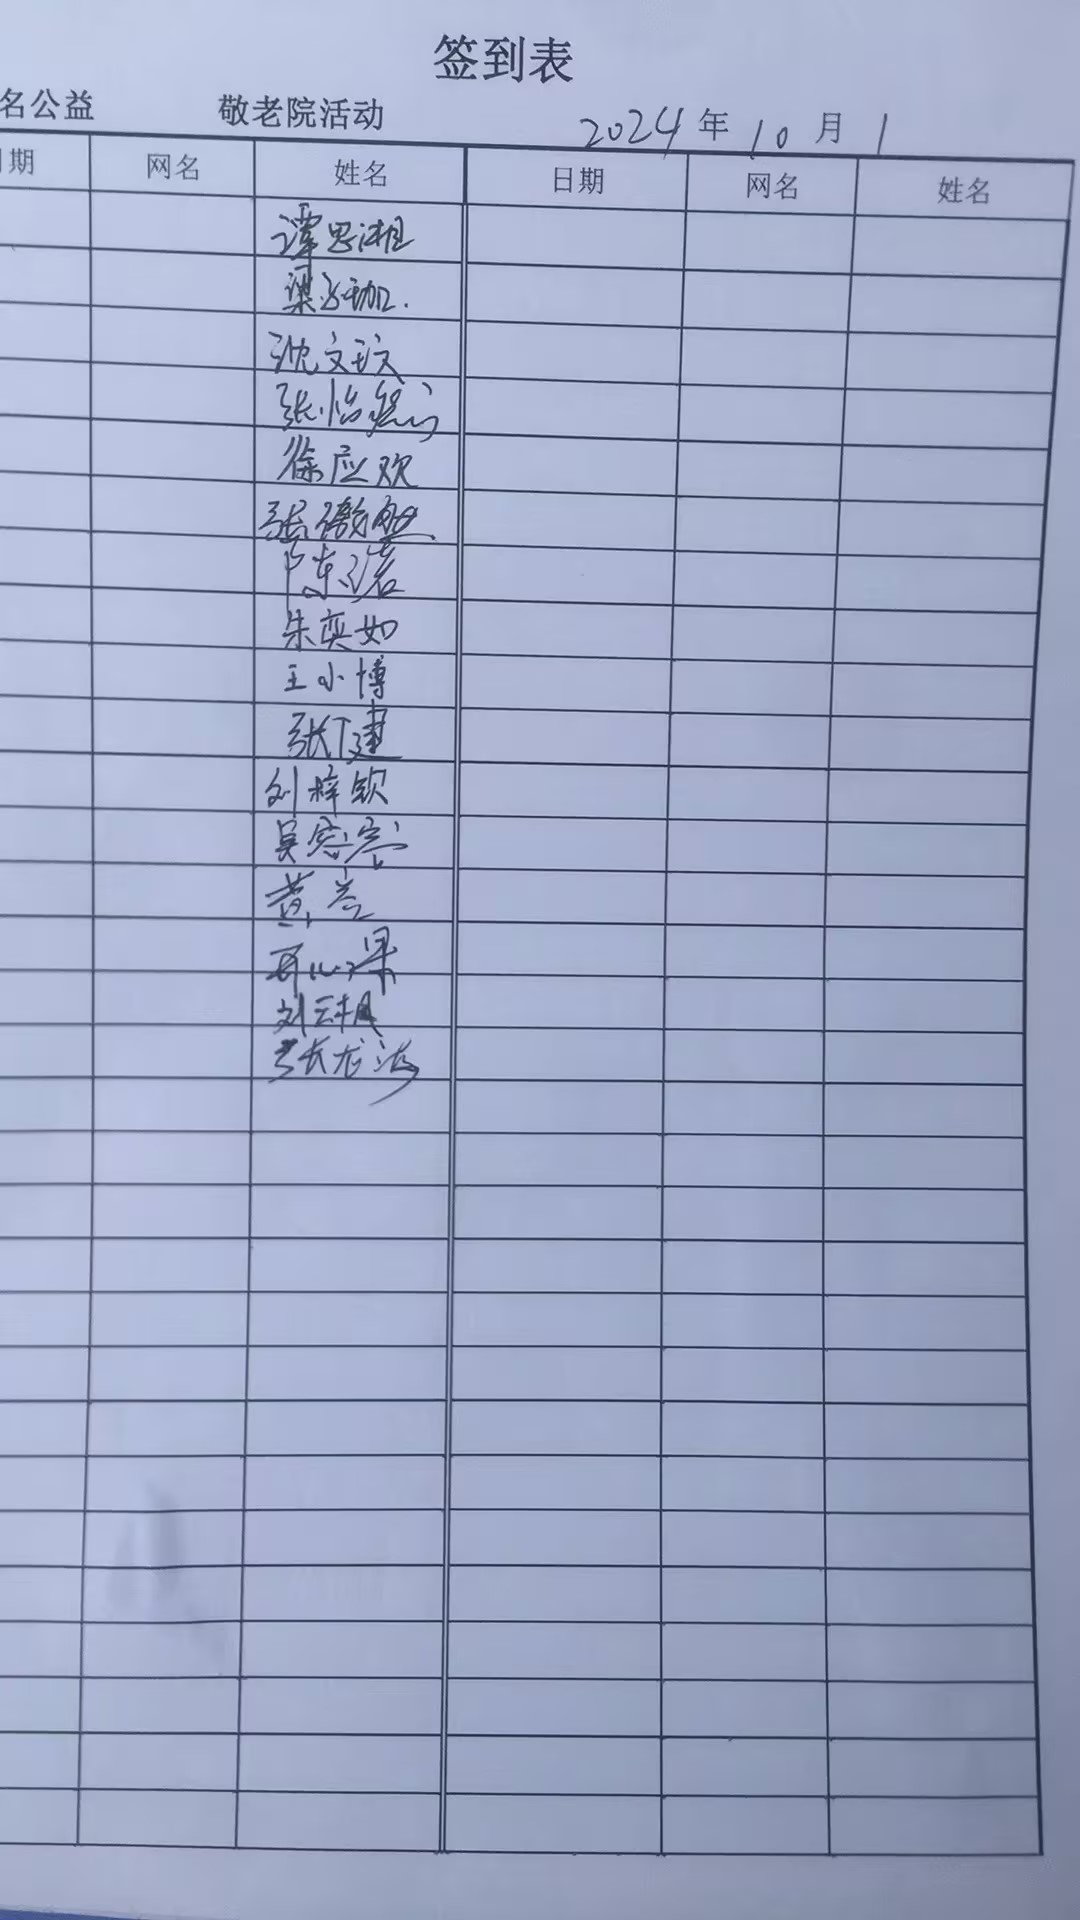 签到表
名公益 敬老院活动 2024年10月1
期 网名 姓名 日期 网名 姓名
谭思湘
梁
沈文玟
张怡
徐应欢
张
陈
朱奕如
王小博
张建
刘梓钦
吴
黄
开心果
刘
张龙海